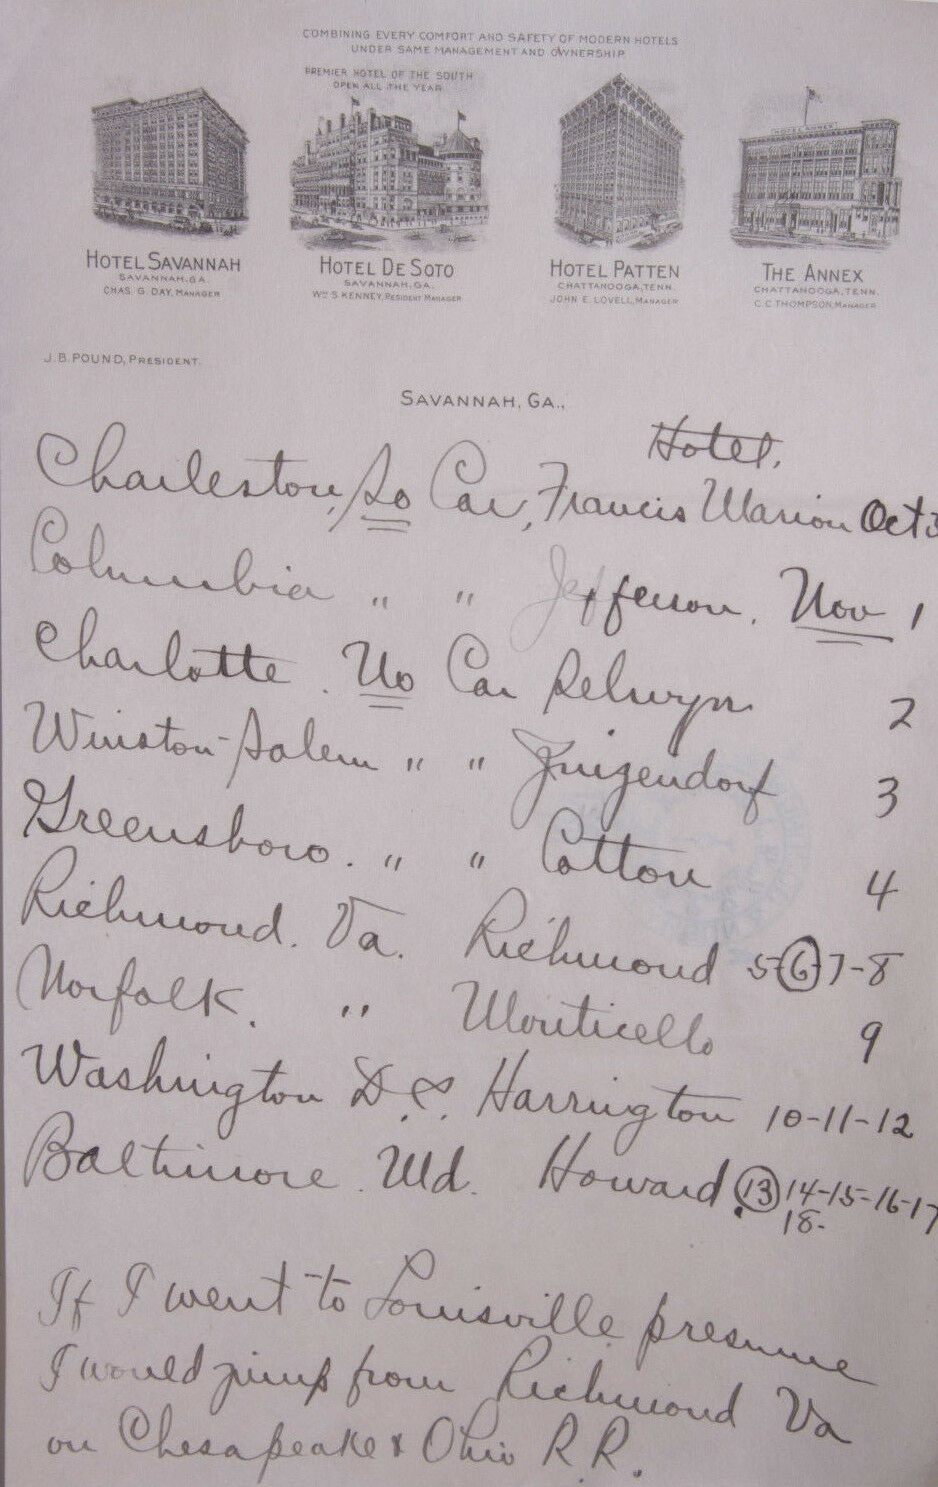 COMBINING EVERY COMFORT AND SAFETY OF MODERN HOTELS
UNDER SAME MANAGEMENT AND OWNERSHIP
PREMIER HOTEL OF THE SOUTH
OPEN ALL THE YEAR
HOTEL ANNEX
HOTEL SAVANNAH
SAVANNAH, GA.
CHAS. G. DAY, MANAGER
HOTEL DE SOTO
SAVANNAH, GA.
WM S. KENNEY, RESIDENT MANAGER
HOTEL PATTEN
CHATTANOOGA, TENN.
JOHN E. LOVELL, MANAGER
THE ANNEX
CHATTANOOGA, TENN.
C. C. THOMPSON, MANAGER
J. B. POUND, PRESIDENT.
SAVANNAH, GA.,
Hotel.
Charleston, So Car, Francis Marion Oct 3
Columbia " " Jefferson. Nov 1
Charlotte. No Car Selwyn 2
Winston-Salem " " Zinzendorf 3
Greensboro. " " Cotton 4
Richmond. Va. Richmond 5-6-7-8
Norfolk. " Monticello 9
Washington D.C. Harrington 10-11-12
Baltimore. Md. Howard. 13 14-15-16-17
18-
If I went to Louisville presume
I would jump from Richmond Va
on Chesapeake & Ohio R.R.